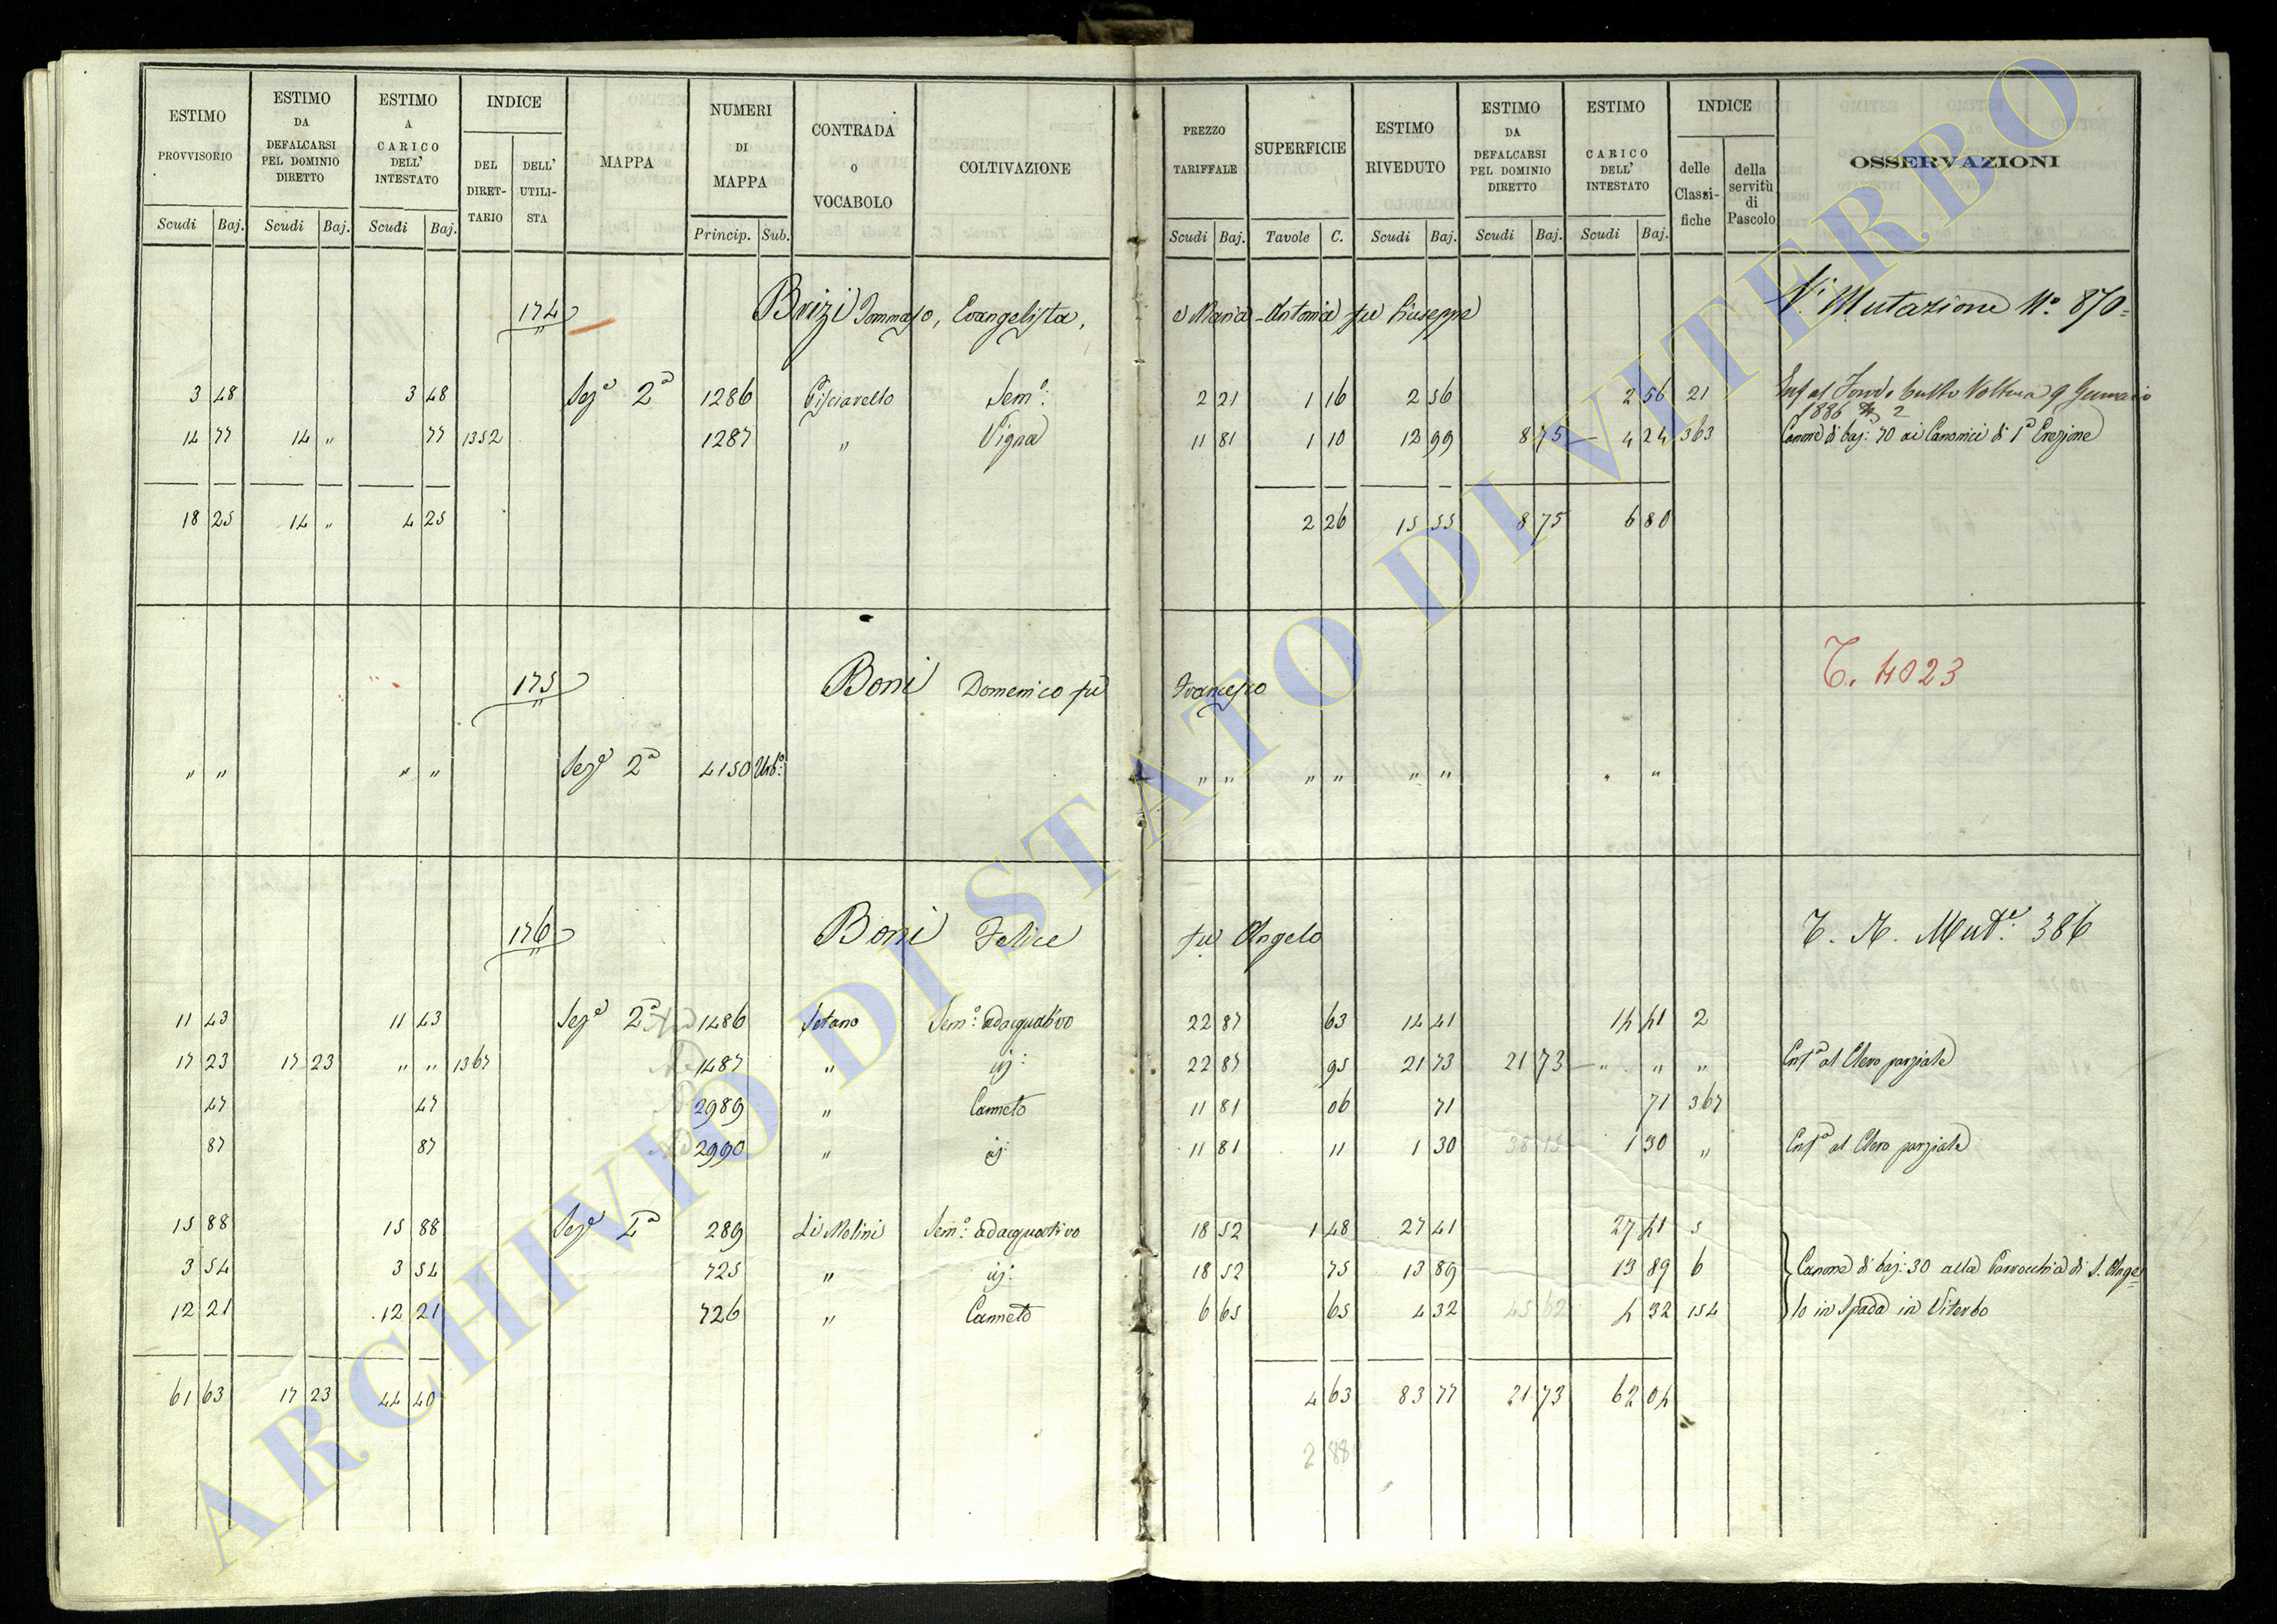 ESTIMO PROVVISORIO Scudi Baj. ESTIMO DA DEFALCARSI PEL DOMINIO DIRETTO Scudi Baj. ESTIMO A CARICO DELL' INTESTATO Scudi Baj. INDICE DEL DIRET-TARIO DELL' UTILI-STA MAPPA NUMERI DI MAPPA Princip. Sub. CONTRADA o VOCABOLO COLTIVAZIONE PREZZO TARIFFALE Scudi Baj. SUPERFICIE Tavole C. ESTIMO RIVEDUTO Scudi Baj. ESTIMO DA DEFALCARSI PEL DOMINIO DIRETTO Scudi Baj. ESTIMO A CARICO DELL' INTESTATO Scudi Baj. INDICE delle Classi-fiche della servitù di Pascolo OSSERVAZIONI
174 Brizi Tommaso, Evangelista, e Maria Antonia fu Giuseppe V. Mutazione N.º 870
3 48 3 48 Sez.e 2ª 1286 Pisciarello Sem.º 2 21 1 16 2 56 2 56 21 9 Gennaio
1886 2
14 77 14 " 77 1352 1287 " Vigna 11 81 1 10 12 99 8 75 4 24 363 Canone di baj: 70 ai Canonici di 1ª Erezione
18 25 14 " 4 25 2 26 15 55 8 75 6 80
175 Boni Domenico fu Francesco T. 4023
" " " " Sez.e 2ª 4150 Urb.º " " " " " " " "
176 Boni Felice fu Angelo T. N. Mut.e 386
11 43 11 43 Sez.e 2ª 1486 Setano Sem.º adacquativo 22 87 63 14 41 14 41 2
17 23 17 23 " " 1367 1487 " ij: 22 87 95 21 73 21 73 " " " Enf.ª al Clero parziale
47 47 2989 " Canneto 11 81 06 71 71 367
87 87 2990 " ij 11 81 11 1 30 38 15 1 30 " Enf.ª al Clero parziale
15 88 15 88 Sez.e 1ª 289 Li Molini Sem.º adacquativo 18 52 1 48 27 41 27 41 5
3 54 3 54 725 " ij: 18 52 75 13 89 13 89 6 Canone di baj: 30 alla Parrocchia di S. Ange=
12 21 12 21 726 " Canneto 6 65 65 4 32 45 62 4 32 154 lo in Spada in Viterbo
61 63 17 23 44 40 4 63 83 77 21 73 62 04
2 88
ARCHIVIO DI STATO DI VITERBO